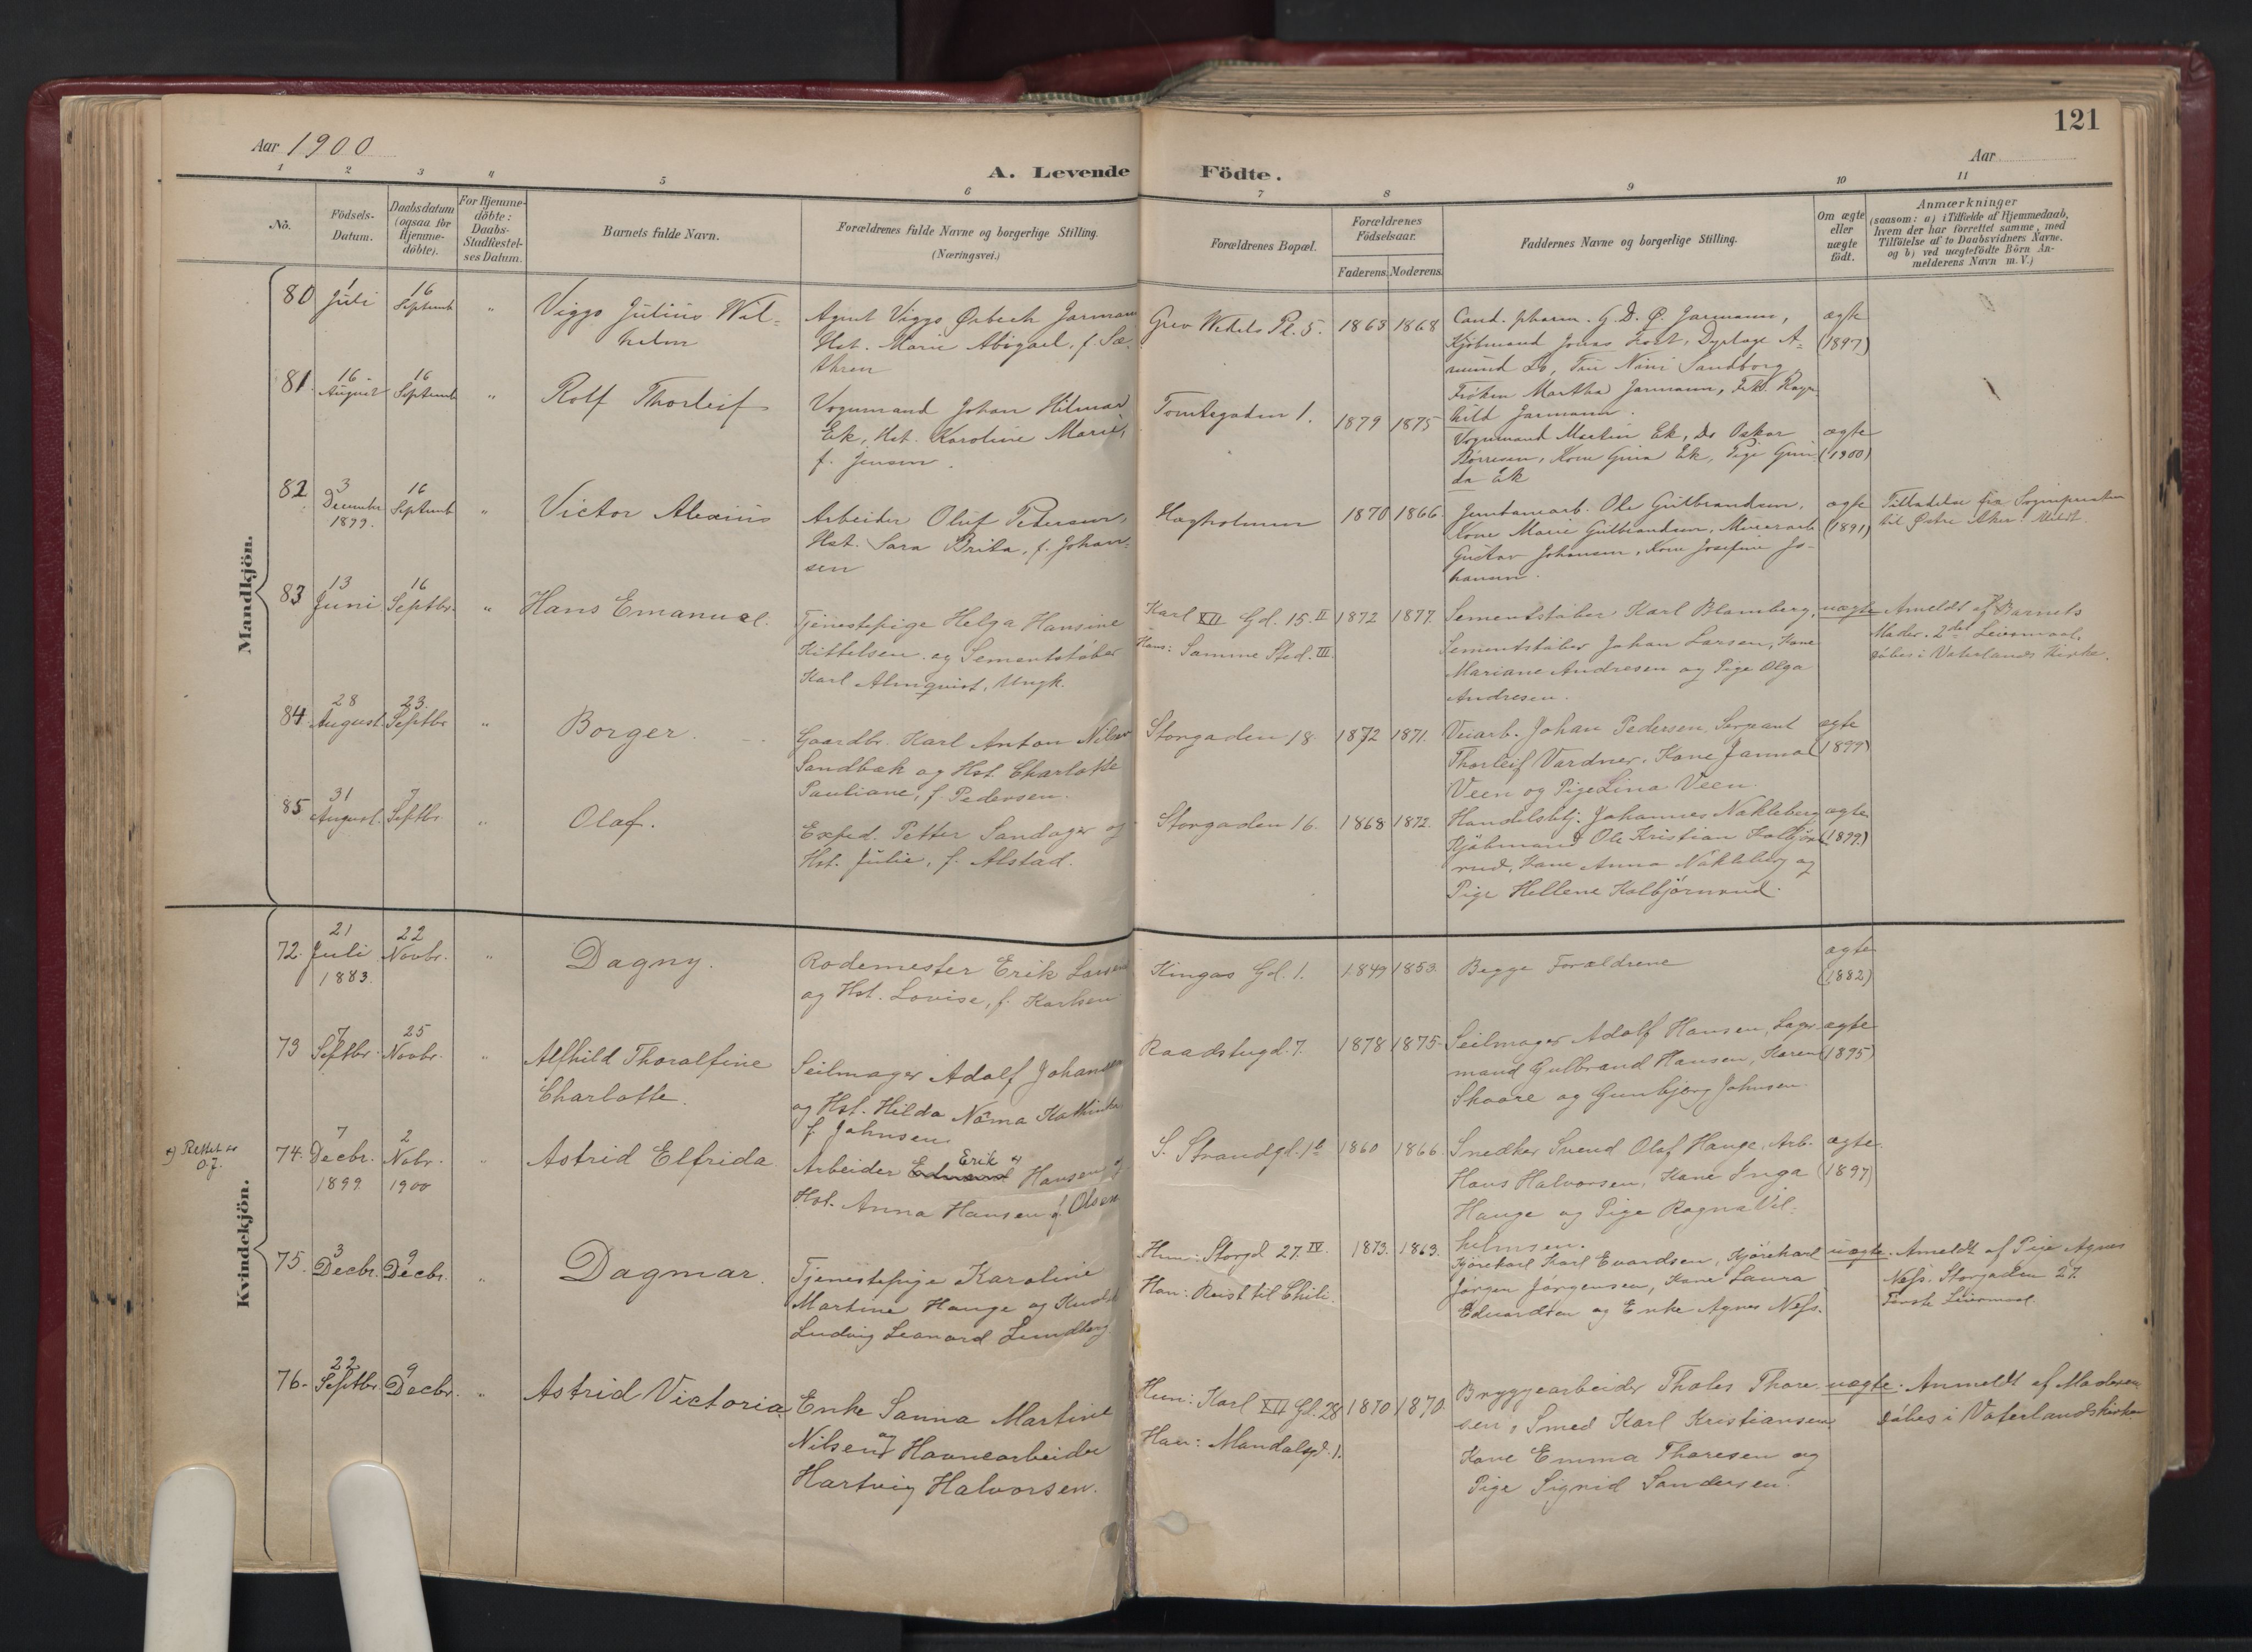 121
Aar 1900
Aar
A. Levende Födte.
1 2 3 4 5 6 7 8 9 10 11
No.
Födsels-Datum.
Daabsdatum (ogsaa for Hjemme-döbte).
For Hjemme-döbte: Daabs-Stadfæstel-ses Datum.
Barnets fulde Navn.
Forældrenes fulde Navne og borgerlige Stilling.
(Næringsvei.)
Forældrenes Bopæl.
Forældrenes Födselsaar.
Faderens. Moderens.
Faddernes Navne og borgerlige Stilling.
Om ægte eller uægte födt.
Anmærkninger
(saasom: a) i Tilfælde af Hjemmedaab,
hvem der har forrettet samme, med
Tilföielse af to Daabsvidners Navne.
og b) ved uægtefödte Börn An-
melderens Navn m. V.)
Mandkjön.
80 1 Juli 16 Septemb "
Viggo Julius Wil-
helm
Agent Viggo Ørbech Jarmann
Hst. Marie Abigael, f. Sæ-
thren
Grev Wedels Pl. 5. 1863 1868
Cand. pharm. G. D. Ø. Jarmann,
Kjøbmand Jonas , A-
mund Do, Fru Nini Sandborg
Frøken Martha Jarmann, Frk. Ragn-
hild Jarmann.
ægte
(1897)
81. 16 August 16 Septemb "
Rolf Thorleif
Vognmand Johan Hilmar
Ek, Hst. Karoline Marie,
f. Jensen.
Tomtegaden 1. 1879 1875
Vognmand Martin Ek, Do Oskar
Børresen, Kone Gina Ek, Pige Gun-
da Ek
ægte
(1900)
82 3 December 1899. 16 Septemb "
Victor Alexius
Arbeider Oluf Pedersen,
Hst. Sara Brita, f. Johan-
sen
Hagholmen 1870 1866.
Ole Gulbrandsen,
Kone Marie Gulbrandsen, Murerarb.
Gustav Johansen, Kone Josefine Jo-
hansen.
ægte
(1891)
Tilladelse fra Sognepresten
til Østre Aker. Meldt.
83 13 Juni 16 Septbr. "
Hans Emanuel.
Tjenestepige Helga Hansine
Kittelsen og Sementstøber
Karl Almquist, Ungk.
Karl XII Gd. 15. II
Hans: Samme Sted. III
1872 1877.
Sementstøber Karl Blomberg,
Sementstøber Johan Larsen, Kone
Mariane Andresen og Pige Olga
Andresen.
uægte
Anmeldt af Barnets
Moder. 2det Leiermaal.
døbes i Vaterlands Kirke.
84. 28 August. 23. Septbr "
Borger.
Gaardbr. Karl Anton Nilsen
Sandbæk og Hst. Charlotte
Pauliane, f. Pedersen.
Storgaden 18 1872 1871.
Veiarb. Johan Pedersen, Sergeant
Thorleif Vardner, Kone Janna
Veen og Pige Lina Veen.
ægte
(1899)
85 31 August. 7 Septbr. "
Olaf.
Exped. Petter Sandager og
Hst. Julie, f. Alstad.
Storgaden 16. 1868 1872.
Handelsbtj. Johannes Nakleberg
Kjøbmand Ole Kristian Kolbjørns-
rud, Kone Anna Nakleberg og
Pige Hellene Kolbjørnsrud.
ægte
(1899)
Kvindekjön.
72. 21 Juli 1883. 22 Novbr. "
Dagny.
Rodemester Erik Larsen
og Hst. Lovise, f. Karlsen
Kingos Gd. 1. 1849 1853.
Begge Forældrene
ægte
(1882)
73 7 Septbr. 25 Novbr. "
Alfhild Thoralfine
Charlotte.
Seilmager Adolf Johansen
og Hst. Hilda Nåma Kathinka
f. Johnsen.
Raadstugd. 7. 1878 1875.
Seilmager Adolf Hansen, Lager-
mand Gulbrand Hansen, Karen
Skaare og Gunbjørg Johnsen.
ægte
(1895)
x) Rettet av
O.J.
74. 7 Decbr. 1899 2 Nobr. 1900 "
Astrid Elfrida
Erik x)
Arbeider Edvard Hansen og
Hst. Anna Hansen f. Olsen.
S. Strandgd. 1b 1860 1866.
Snedker Svend Olaf Hauge, Arb.
Hans Halvorsen, Kone Inga
Hauge og Pige Ragna Vil-
helmsen.
ægte.
(1897)
75. 3 Decbr. 9 Decbr. "
Dagmar.
Tjenestepige Karoline
Martine Hauge og Kusk
Ludvig Leonard Lundberg
Hun: Storgd 27. IV.
Han: Reist til Chili.
1873. 1863.
Kjørekarl Karl Evardsen, Kjørekarl
Jørgen Jørgensen, Kone Laura
Edvardsen og Enke Agnes Næss.
uægte.
Anmeldt af Pige Agnes
Næss. Storgaden 27.
Første Leiermaal.
76. 22 Septbr. 9 Decbr. "
Astrid Victoria.
Enke Sanna Martine
Nilsen og Havnearbeider
Hartvig Halvorsen.
Hun: Karl XII Gd. 28
Han: Mandalsgd. 1.
1870 1870
Bryggearbeider Thales Thore-
sen, Smed Karl Kristiansen.
Kone Emma Thoresen og
Pige Sigrid Sandersen.
uægte.
Anmeldt af Moderen
døbes i Vaterlandskirken